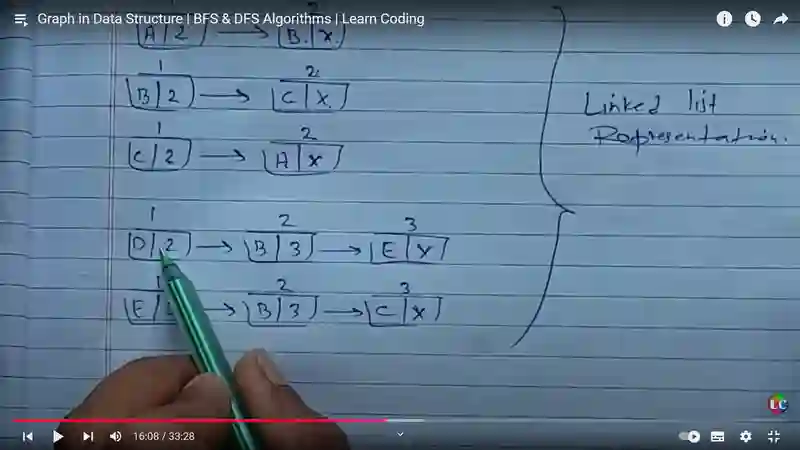 Graph in Data Structure | BFS & DFS Algorithms | Learn Coding
A | 2 → B | X
1 2
B | 2 → C | X
1 2
C | 2 → A | X
1 2 3
D | 2 → B | 3 → E | X
2 3
E | → B | 3 → C | X
Linked list
Representation.
LC
16:08 / 33:28